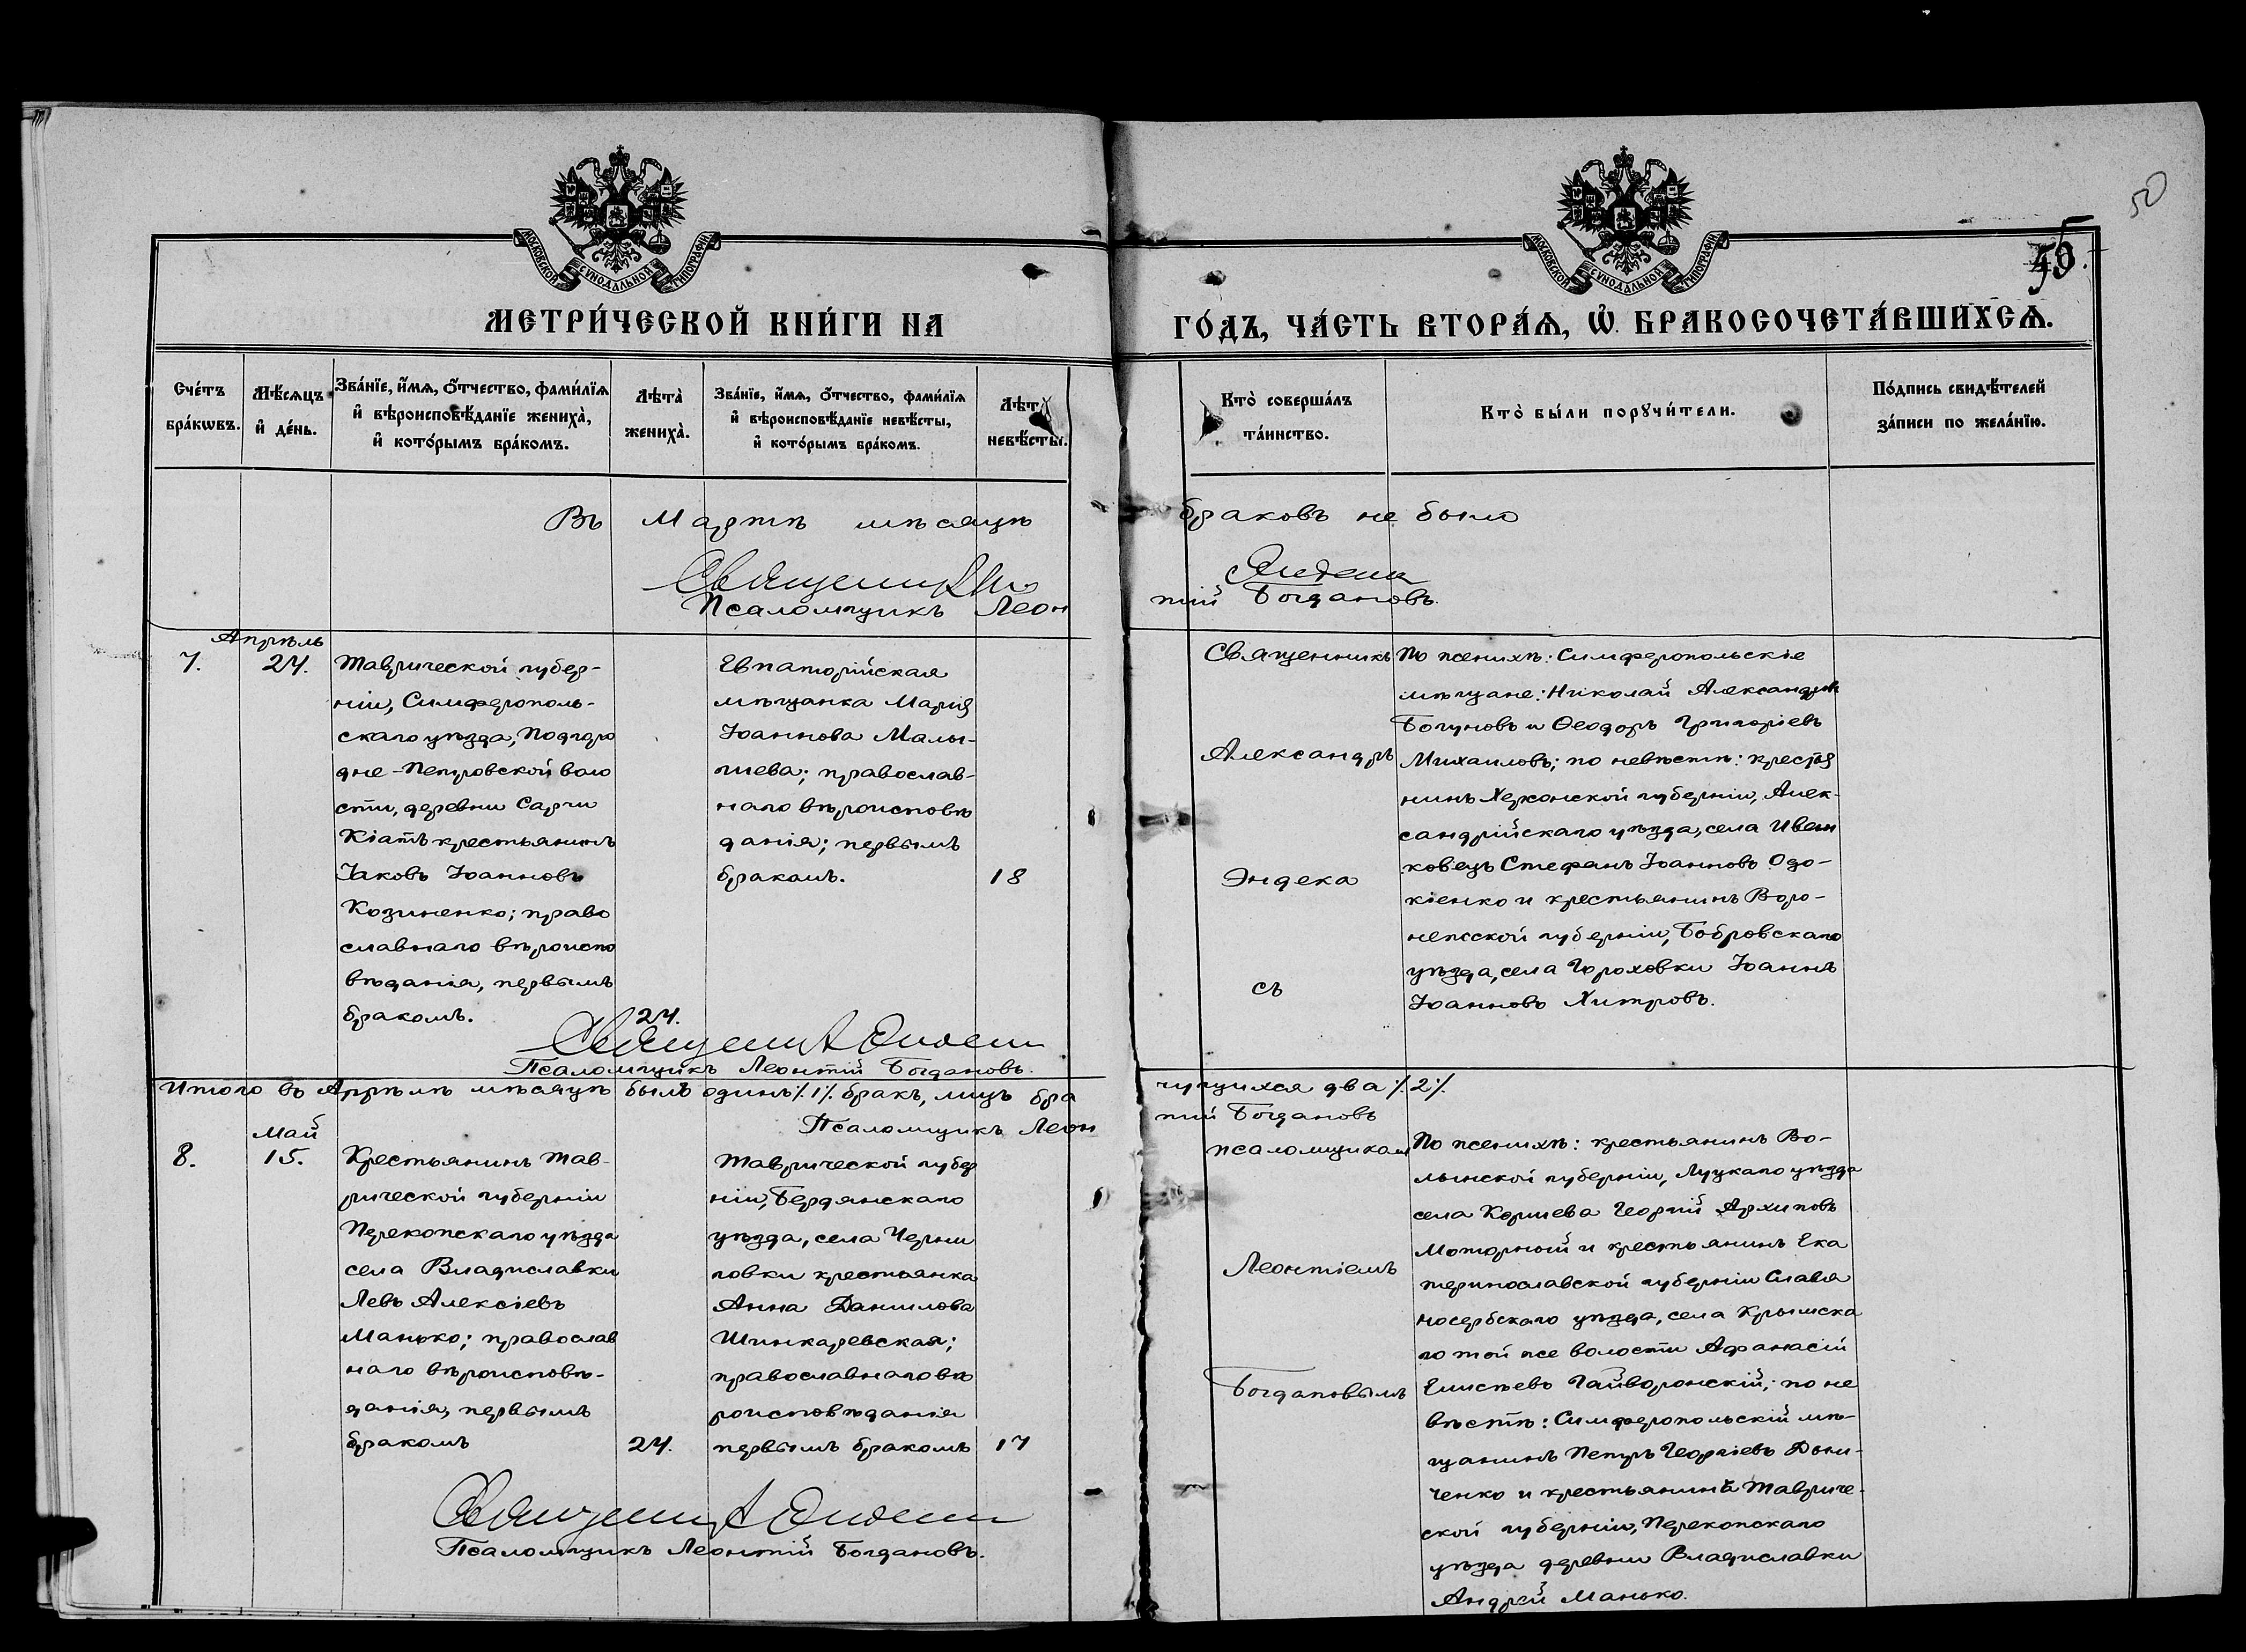 50
55.
МОСКОВСКОЙ СѴНОДАЛЬНОЙ ТИПОГРАФІИ
МОСКОВСКОЙ СѴНОДАЛЬНОЙ ТИПОГРАФІИ
МЕТРИ́ЧЕСКОЙ КНИ́ГИ НА
ГО́ДЪ, ЧА́СТЬ ВТОРА́Ѧ, Ѽ БРАКОСОЧЕТА́ВШИХСѦ.
Сче́тъ
бра́кѡвъ.
Мѣ́сяцъ
и҆ де́нь.
Зва́нїе, и҆́мѧ, ѻ҆́тчество, фами́лїѧ
и҆ вѣроисповѣ́данїе жениха̀,
и҆ кото́рымъ бра́комъ.
Лѣ́та
жениха̀.
Зва́нїе, и҆́мѧ, ѻ҆́тчество, фами́лїѧ
и҆ вѣроисповѣ́данїе невѣ́сты,
и҆ кото́рымъ бра́комъ.
Лѣ́т
невѣ́сты.
Кто̀ соверша́лъ
та́инство.
Кто̀ бы́ли порꙋчи́тели.
По́дпись свидѣ́телей
за́писи по жела́нїю.
Въ Мартѣ мѣсяцѣ браковъ не было
Священникъ
Псаломщикъ Леонтій Богдановъ.
Апрѣль
7.
24.
Таврической губер-
ніи, Симферополь-
скаго уѣзда, Подгоро
дне-Петровской воло
сти, деревни Сарчи
Кіатъ крестьянинъ
Іаковъ Іоанновъ
Козиненко; право
славнаго вѣроиспо
вѣданія, первымъ
бракомъ.
24.
Евпаторійская
мѣщанка Марія
Іоаннова Малы-
шева; православ-
наго вѣроисповѣ
данія; первымъ
бракомъ.
18
Священникъ
Александръ
Эндека
съ
По женихѣ: Симферопольскіе
мѣщане: Николай Александровъ
Богуновъ и Ѳеодоръ Григоріевъ
Михаиловъ; по невѣстѣ: крестья
нинъ Херсонской губерніи, Алек-
сандрійскаго уѣзда, села Иван
ковецъ Стефанъ Іоанновъ Одо-
кіенко и крестьянинъ Воро-
нежской губерніи, Бобровскаго
уѣзда, села Гороховки Іоаннъ
Іоанновъ Хитровъ.
Священникъ А Эндека
Псаломщикъ Леонтій Богдановъ.
Итого въ Апрѣлѣ мѣсяцѣ былъ одинъ ⁒ 1 ⁒ бракъ, лицъ бра чущихся два ⁒ 2 ⁒
Псаломщикъ Леонтій Богдановъ
Май
8.
15.
Крестьянинъ Тав-
рической губерніи
Перекопскаго уѣзда
села Владиславки
Левъ Алексіевъ
Манько; православ
наго вѣроисповѣ-
данія, первымъ
бракомъ
24.
Таврической губер
ніи, Бердянскаго
уѣзда, села Черни
говки крестьянка
Анна Данилова
Шинкаревская;
православнаго вѣ
роисповѣданія
первымъ бракомъ
17
псаломщикомъ
Леонтіемъ
Богдановымъ
По женихѣ: крестьянинъ Во-
лынской губерніи, Луцкаго уѣзда
села Коршева Георгій Архиповъ
Моторный и крестьянинъ Ека
теринославской губерніи Славя
носербскаго уѣзда, села Крымска
го той же волости Афанасій
Елисѣевъ Гайворонскій; по не
вѣстѣ: Симферопольскій мѣ-
щанинъ Петръ Георгіевъ Дони-
ченко и крестьянинъ Тавриче-
ской губерніи, Перекопскаго
уѣзда деревни Владиславки
Андрей Манько.
Священникъ А Эндека
Псаломщикъ Леонтій Богдановъ.